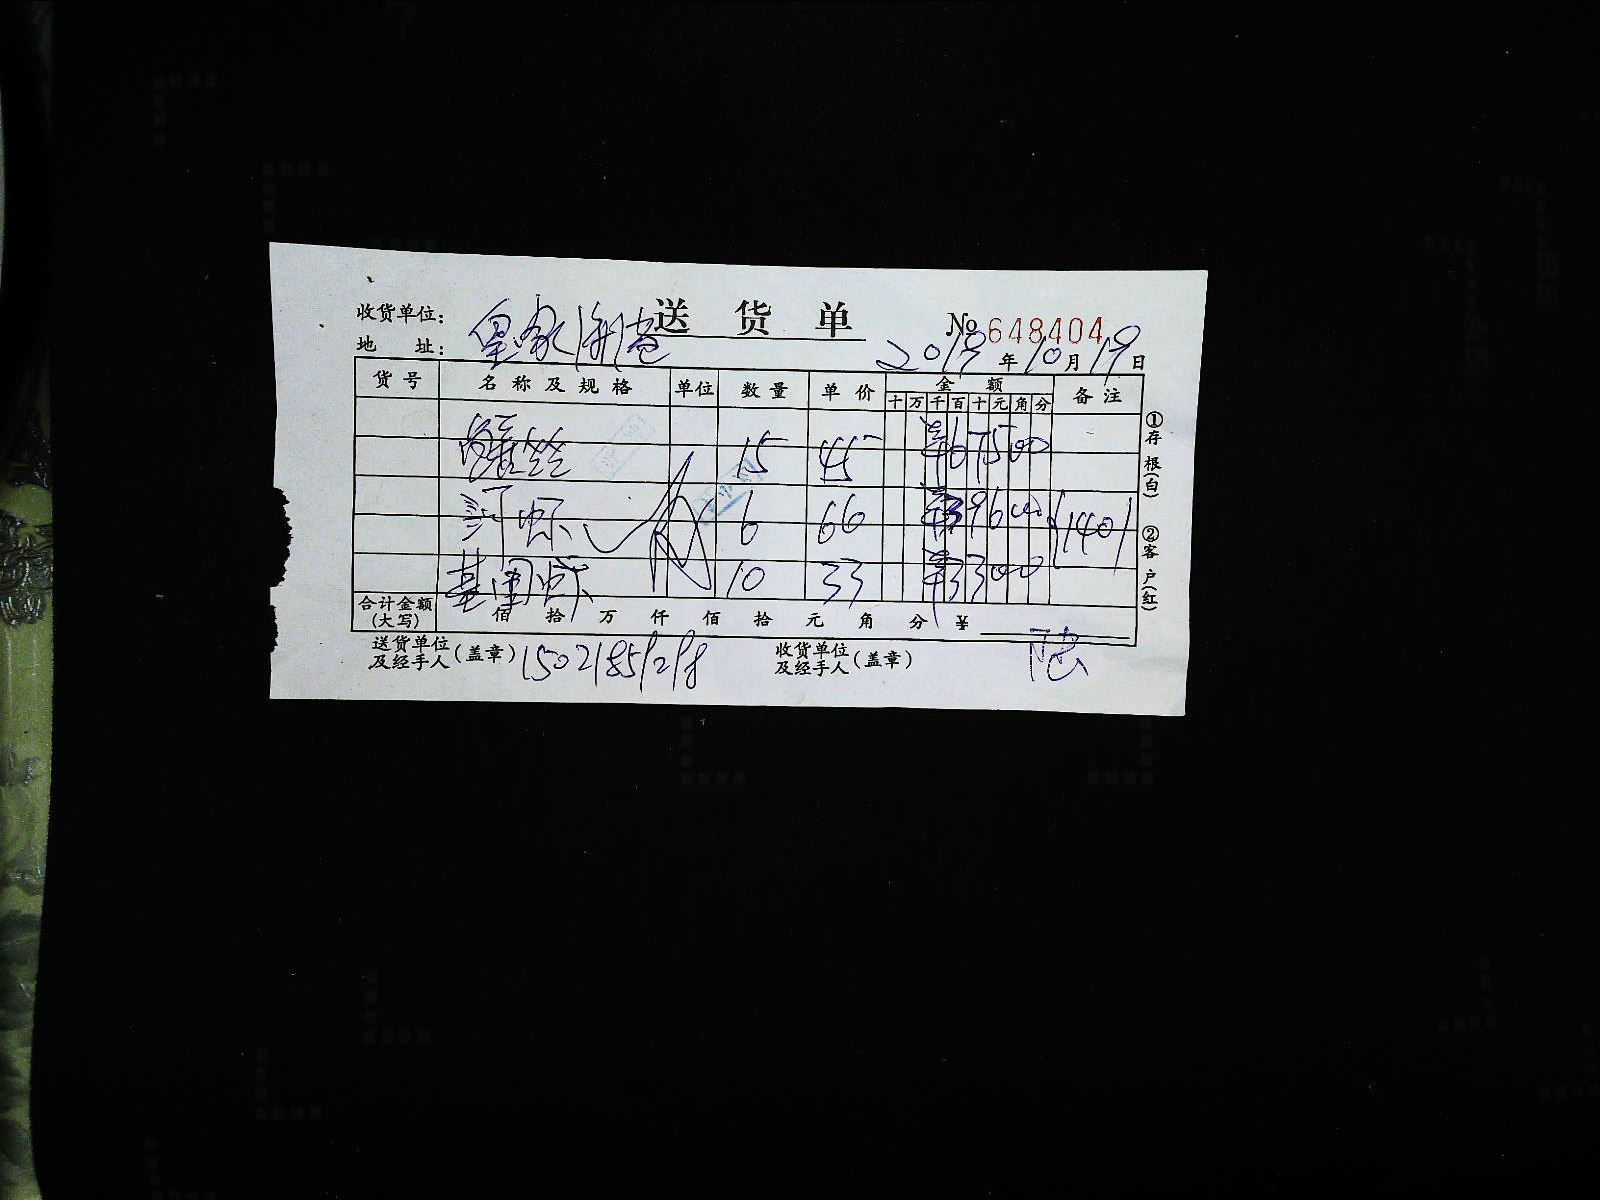 收货单位： 送货单 № 648404
地 址： 皇家 2019年10月19日
货号 名称及规格 单位 数量 单价 金额 备注
十万千百十元角分
15 45 67500
河虾 6 66 39600 1401
基围虾 10 33 33000
合计金额(大写) 佰 拾 万 仟 佰 拾 元 角 分 ¥
送货单位及经手人(盖章) 15021851218 收货单位及经手人(盖章)
①存根(白) ②客户(红)